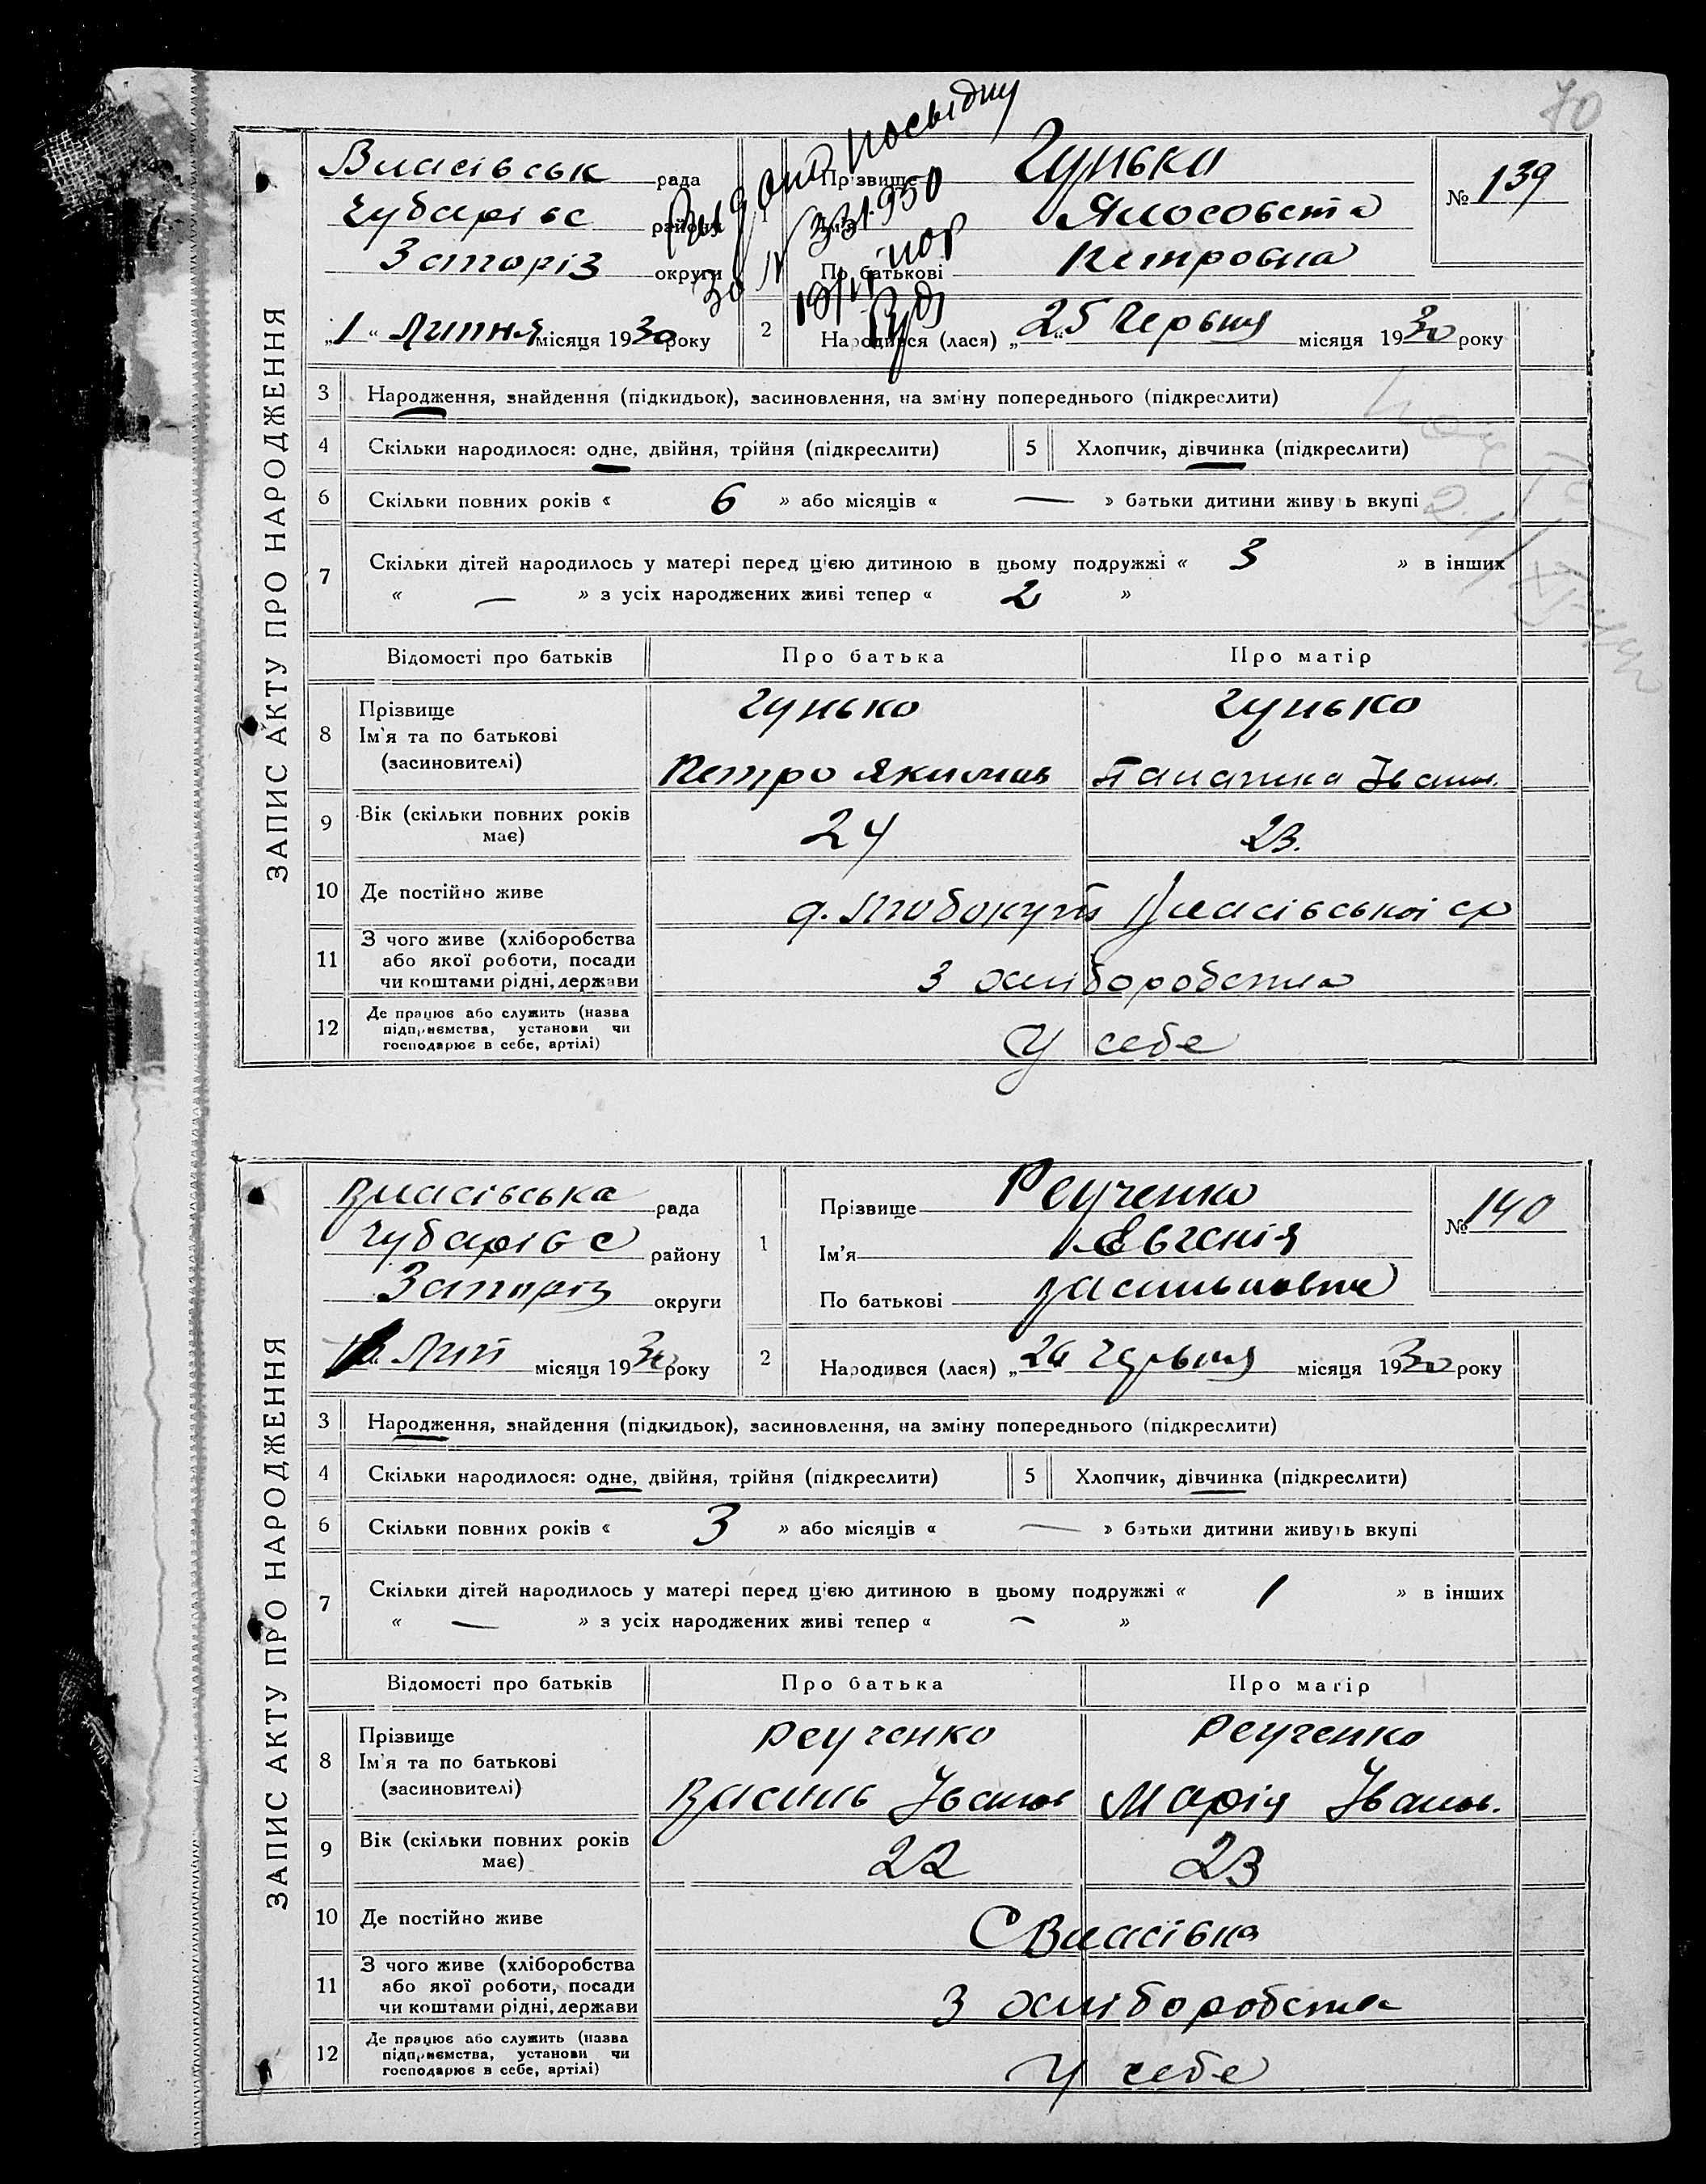 70
ЗАПИС АКТУ ПРО НАРОДЖЕННЯ
Власівськ рада
Чубарівс району
Запоріз округи
„1“ Липня місяця 1930 року
посвідку
Прізвище Гунька
По батькові Петровна
№ 139
2 Народився (лася) „25“ Червня місяця 1930 року
3 Народження, знайдення (підкидьок), засиновлення, на зміну попереднього (підкреслити)
4 Скільки народилося: одне, двійня, трійня (підкреслити) 5 Хлопчик, дівчинка (підкреслити)
6 Скільки повних років « 6 » або місяців « — » батьки дитини живуть вкупі
7 Скільки дітей народилось у матері перед цією дитиною в цьому подружжі « 3 » в інших
« — » з усіх народжених живі тепер « 2 »
Відомості про батьків Про батька Про матір
8 Прізвище
Ім'я та по батькові
(засиновителі)
Гунько Гунько
Петро Якимив Палажка Іван.
9 Вік (скільки повних років має) 24 23.
10 Де постійно живе Власівської ср
11 З чого живе (хліборобства
або якої роботи, посади
чи коштами рідні, держави
З хліборобства
12 Де працює або служить (назва
підприємства, установи чи
господарює в себе, артілі)
У себе
ЗАПИС АКТУ ПРО НАРОДЖЕННЯ
Власівська рада
Чубарівс району
Запоріз округи
Лип місяця 1930 року
1 Прізвище Реученко
Ім'я Євгенія
По батькові Васильовна
№ 140
2 Народився (лася) „26“ Червня місяця 1930 року
3 Народження, знайдення (підкидьок), засиновлення, на зміну попереднього (підкреслити)
4 Скільки народилося: одне, двійня, трійня (підкреслити) 5 Хлопчик, дівчинка (підкреслити)
6 Скільки повних років « 3 » або місяців « — » батьки дитини живуть вкупі
7 Скільки дітей народилось у матері перед цією дитиною в цьому подружжі « 1 » в інших
« — » з усіх народжених живі тепер « — »
Відомості про батьків Про батька Про матір
8 Прізвище
Ім'я та по батькові
(засиновителі)
Реученко Реученко
Василь Іванов Марія Іванов.
9 Вік (скільки повних років має) 22 23
10 Де постійно живе С Власівка
11 З чого живе (хліборобства
або якої роботи, посади
чи коштами рідні, держави
З хліборобства
12 Де працює або служить (назва
підприємства, установи чи
господарює в себе, артілі)
У себе